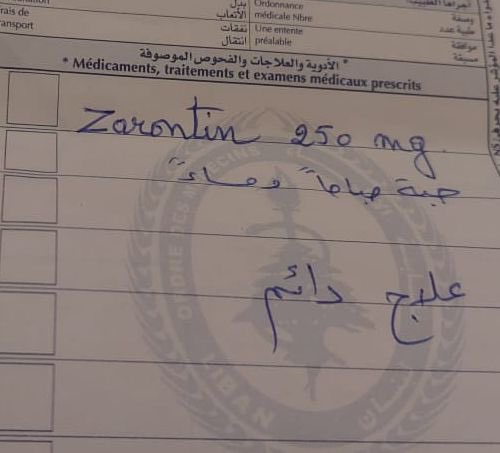 rais de
ransport
نفقات
انتقال
بدل
الأتعاب
Ordonnance
médicale Nbre
Une entente
préalable
وصفة
طبية عدد
موافقة
مسبقة
* الأدوية والعلاجات والفحوص الموصوفة
* Médicaments, traitements et examens médicaux prescrits
Zarontin 250 mg
حبة صباحاً ومساءً
علاج دائم
ORDRE DES MEDECINS
LIBAN